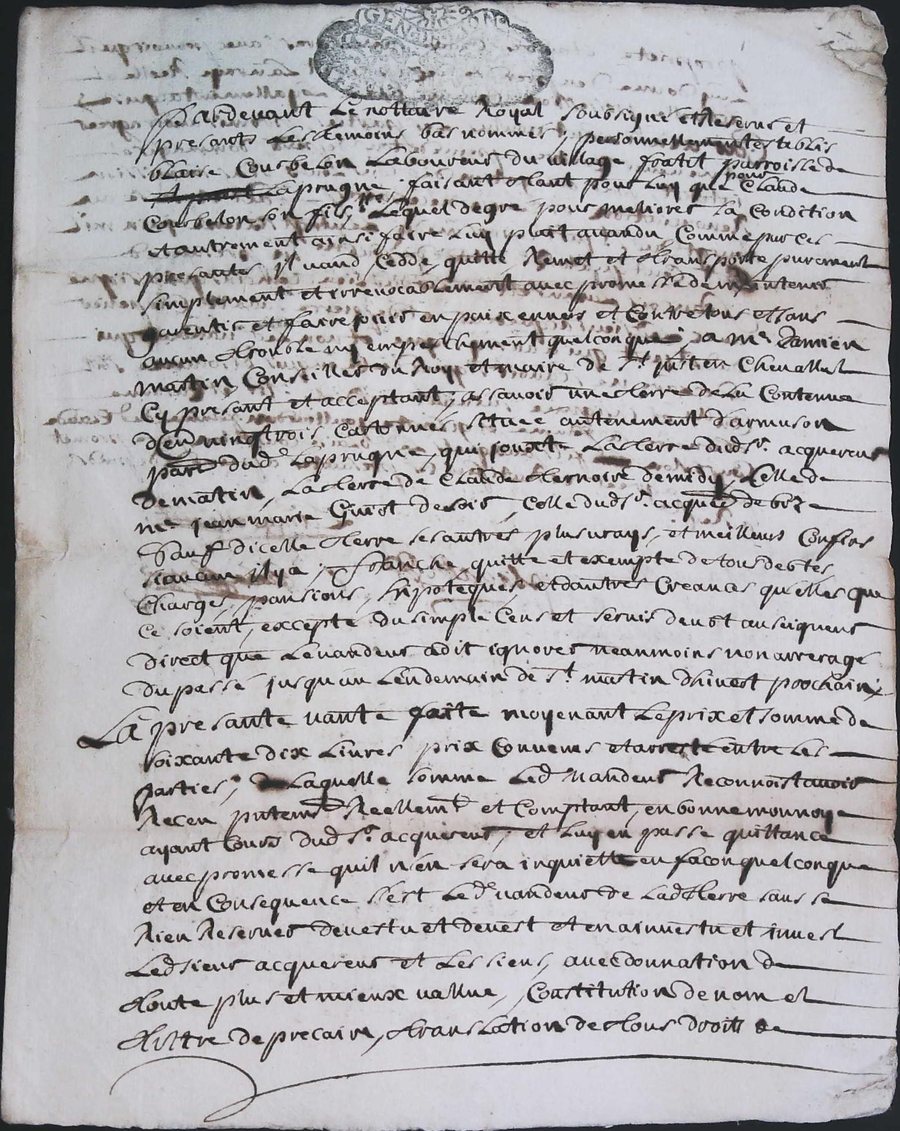 GEN
Pardevant Le nottaire Royal soubsigné et Reservé et
presants Les temoins bas nommés, personnellement estably
blaise Courbelon Laboureur du village fratit parroisse de
Laprugne, faisant tant pour luy que pour Claude
Courbelon son fils, Lequel de gré pour meliorer la Condition
et autrement ainsi faire Luy plait a vandu Comme par ces
presantes il vand, Cedde, quitte Remet et transporte purement
simplement et irrevocablement avec promesse de maintenir
garentir et faire jouir en paix envers et Contre tous et sans
aucun trouble ny empeschement quelconque, a Mr Damien
martin Conseiller du Roy et maire de St justien Chevallet
Cy présant et acceptant, assavoir une terre de La Contenue
d'En vingt trois Cartonnes située au tenement d'armuson
parr dud. Laprugne, qui jouxte La terre dud Sr. acquereur
de matin, La terre de Claude ternoire de midy, Celle de
Mr jean marie Girot de soir, Celle dud Sr. acquer de bize
Sauf d'icelle terre ses autres plus vrays, et meilleurs Confins
sy aucun il y a, franche, quitte et exempte de tous debtes
Charges, pansions, hipoteques et d'autres Creances quelles que
Ce soient, excepté du simple Cens et servis deu et au seigneur
direct que Le vandeur a dit ignorer neanmoins non arreragé
du passé jusqu'au Lendemain de St. martin d'hivert prochain,
La présante vante faite moyenant Le prix et somme de
soixante dix Livres prix Convenus et arresté entre Les
parties, Laquelle somme Led. Vandeur Reconnoist avoir
Receu Reellemt et Comptant, en bonne monnoye
ayant Cours dud Sr. acquereur, et Luy en passe quittance
avec promesse qu'il n'en sera inquietté en facon quelconque
et en Consequence s'est Led. vandeur de Lad terre sans se
Rien Reserver devestu et devest et en a investu et invest
Led sieur acquereur et Les siens, avec donnation de
toute plus et mieux vallue, Constitution de nom et
tittre de precaire, translation de tous droits de